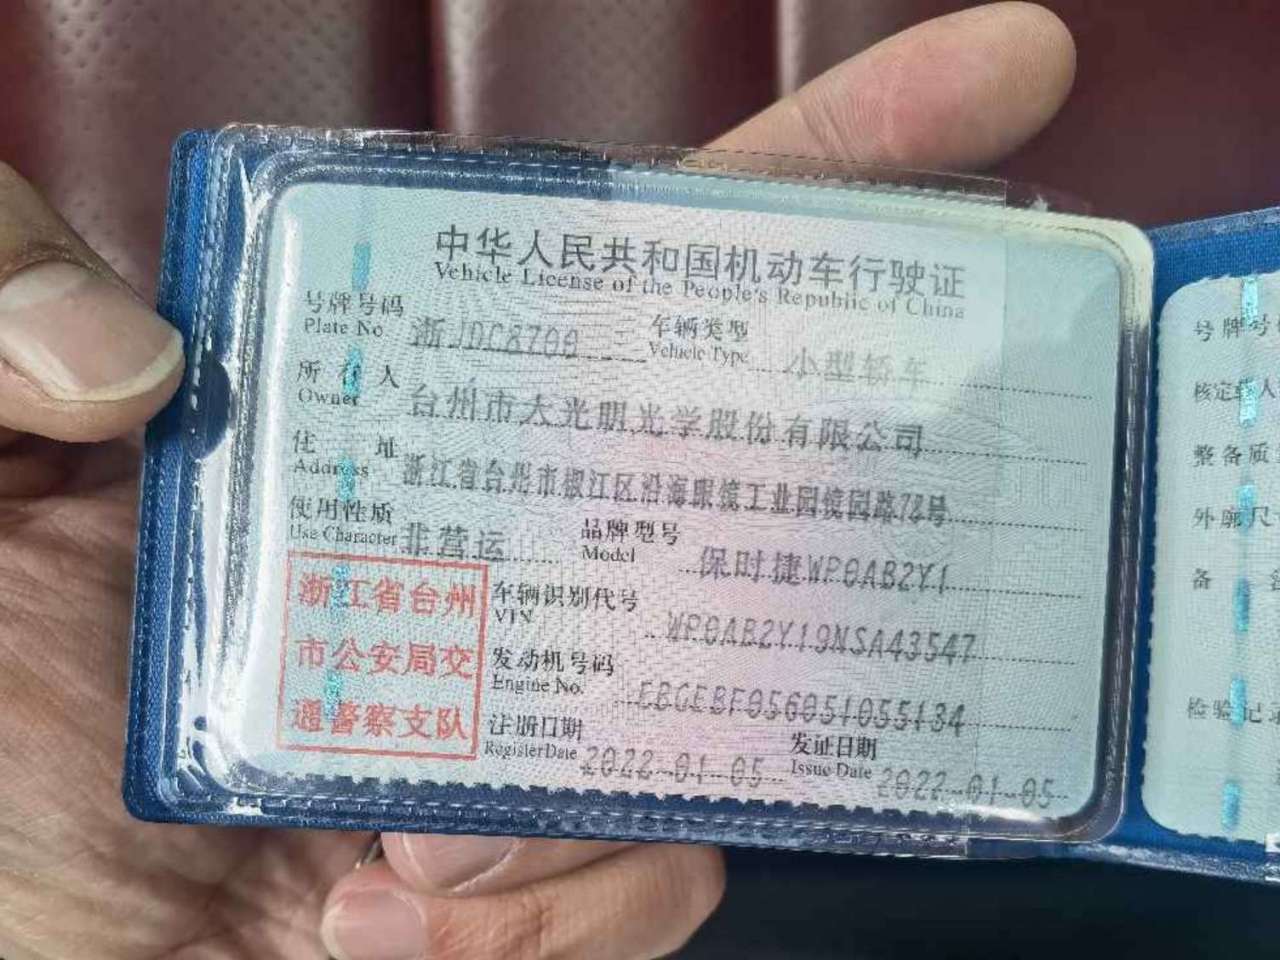 中华人民共和国机动车行驶证
Vehicle License of the People's Republic of China
号牌号码 浙JDC8700 车辆类型 小型轿车
Plate No Vehicle Type
所有人 台州市大光明光学股份有限公司
Owner
住址 浙江省台州市椒江区沿海眼镜工业园镜园路78号
Address
使用性质 非营运 品牌型号 保时捷WP0AB2Y1
Use Character Model
浙江省台州
市公安局交
通警察支队
车辆识别代号 WP0AB2Y19NSA43547
VIN
发动机号码 EBGEBF056051055134
Engine No.
注册日期 2022-01-05 发证日期 2022-01-05
Register Date Issue Date
号牌号
核定载人
整备质
外廓尺
备
检验记